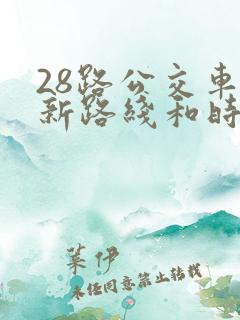 28路公交车
新路线和时
叶伊
未经同意禁止转载